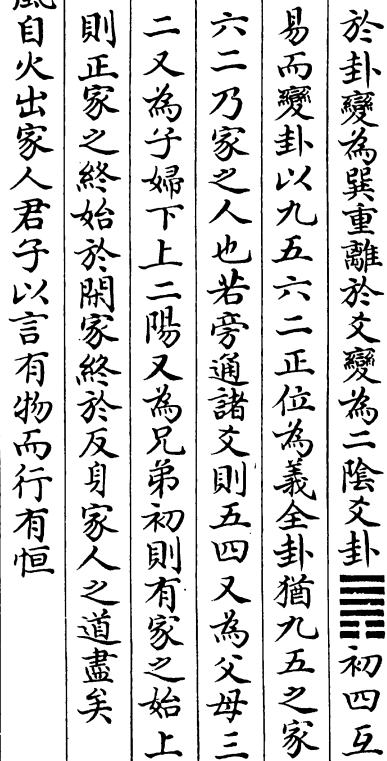 於卦變為巽重離於爻變為二陰爻卦䷠初四互
易而變卦以九五六二正位為義全卦猶九五之家
六二乃家之人也若旁通諸爻則五四又為父母三
二又為子婦下上二陽又為兄弟初則有家之始上
則正家之終始於閑家終於反身家人之道盡矣
風自火出家人君子以言有物而行有恒